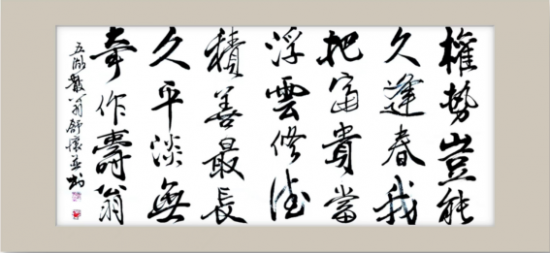 權勢豈能
久逢春我
把富貴當
浮雲修德
積善最長
久平淡無
奇作壽翁
五湖散翁舒懷並